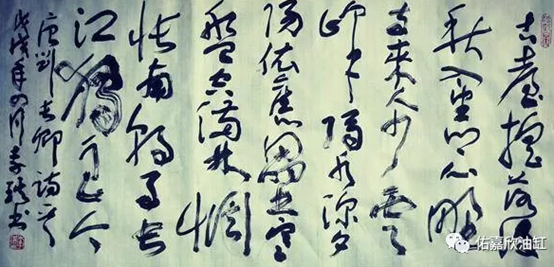 古台摇落后
秋入望乡心野
寺来人少云
峰隔水深夕
阳依旧垒寒
磬空满林惆
怅南朝事长
江独至今
唐刘长卿诗
戊戌年四月李书
佑嘉欣油缸